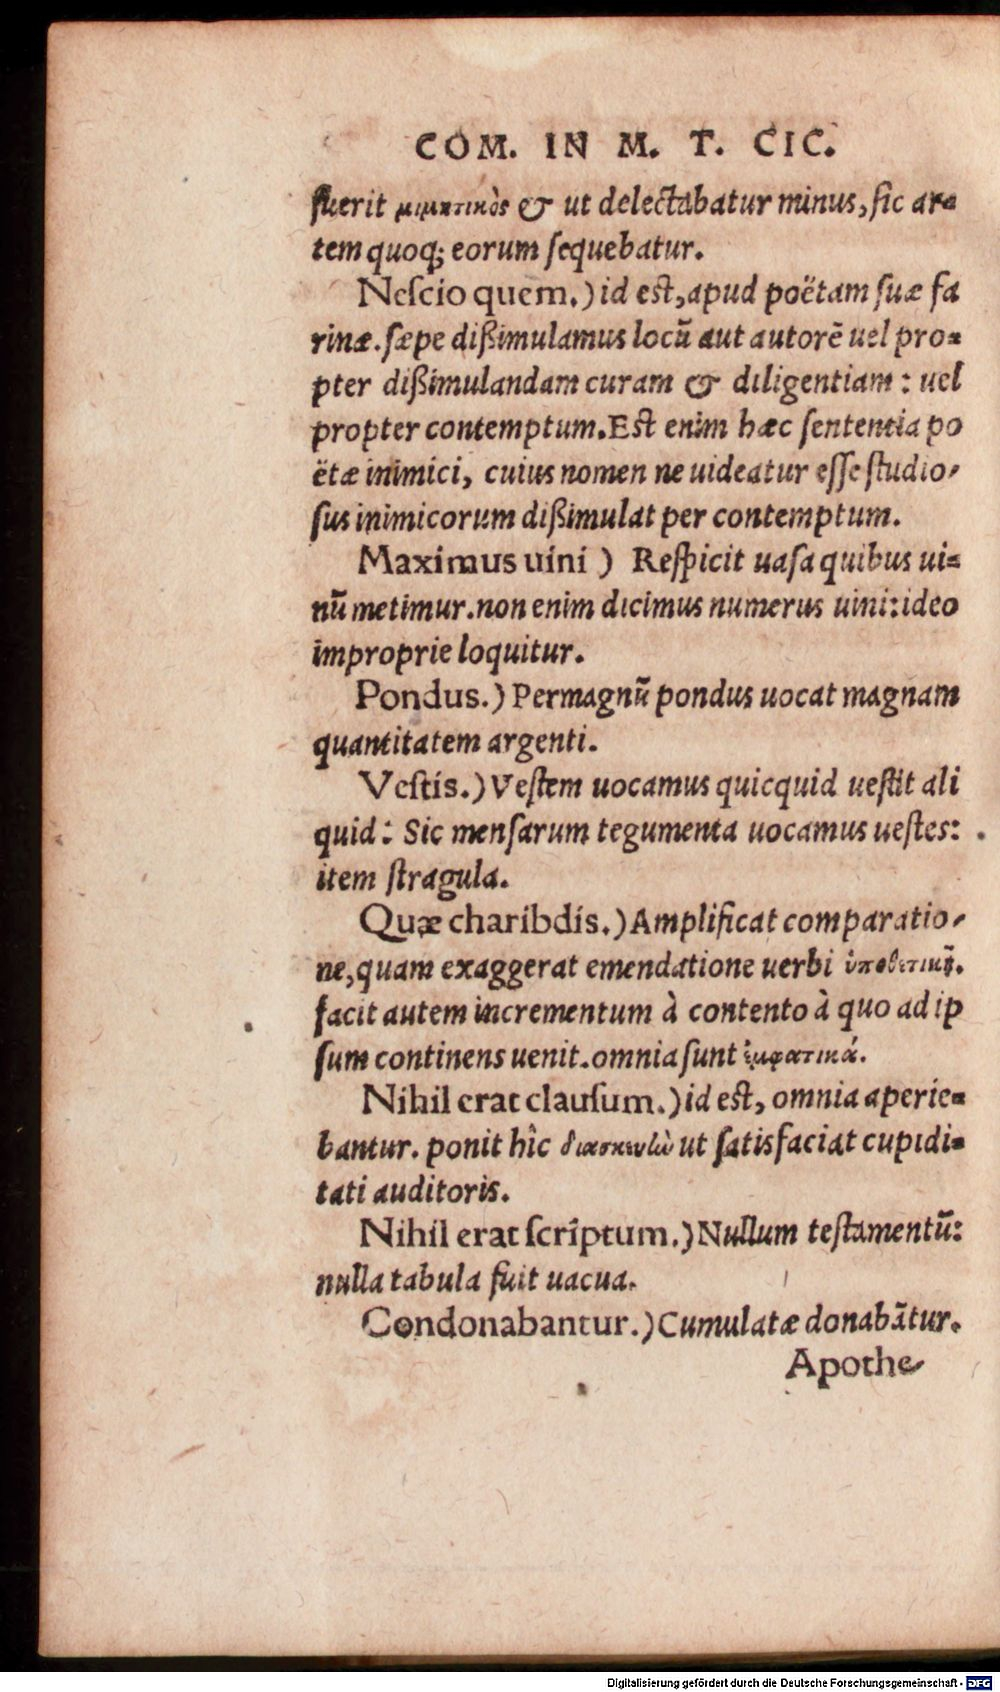 COM. IN M. T. CIC.
fuerit μιμητικὸς & ut delectabatur minus, sic ar=
tem quoq; eorum sequebatur.
Nescio quem.) id est, apud poëtam suæ fa
rinæ. sæpe dißimulamus locũ aut autorẽ uel pro=
pter dißimulandam curam & diligentiam: uel
propter contemptum. Est enim hæc sententia po
ëtæ inimici, cuius nomen ne uideatur esse studio-
sus inimicorum dißimulat per contemptum.
Maximus uini ) Respicit uasa quibus ui=
nũ metimur. non enim dicimus numerus uini: ideo
improprie loquitur.
Pondus.) Permagnũ pondus uocat magnam
quantitatem argenti.
Vestis.) Vestem uocamus quicquid uestit ali
quid: Sic mensarum tegumenta uocamus uestes:
item stragula.
Quæ charibdis.) Amplificat comparatio-
ne, quam exaggerat emendatione uerbi
facit autem incrementum à contento à quo ad ip
sum continens uenit. omnia sunt ἐμφατικά.
Nihil erat clausum.) id est, omnia aperie=
bantur. ponit hîc διασκευὴν ut satisfaciat cupidi=
tati auditoris.
Nihil erat scriptum.) Nullum testamentũ:
nulla tabula fuit uacua.
Condonabantur.) Cumulatæ donabãtur.
Apothe-
Digitalisierung gefördert durch die Deutsche Forschungsgemeinschaft - DFG